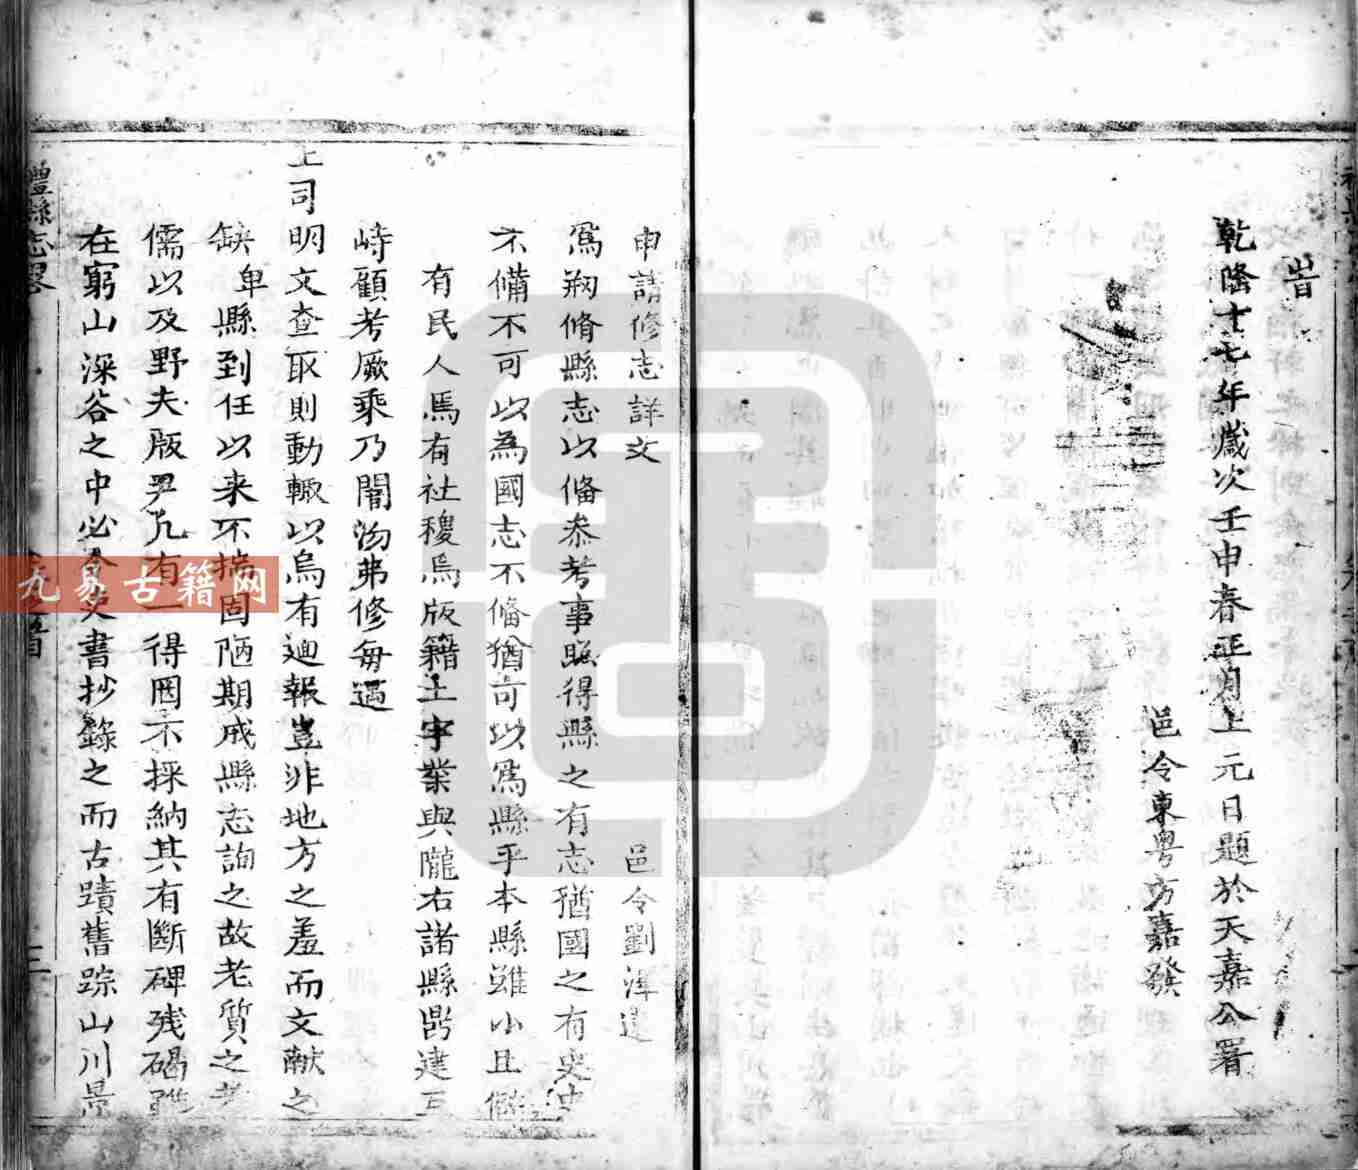 旹
乾隆十七年歲次壬申春正月上元日題於天嘉公署
邑令東粤方嘉發
申請修志詳文
邑令劉澤遠
為剏脩縣志以俻叅考事照得縣之有志猶國之有史史
不備不可以為國志不俻猶可以為縣乎本縣雖小且僻
有民人焉有社稷焉版籍土宇業與隴右諸縣鼎建互
峙顧考厥乘乃闇沕弗修每遇
上司明文查取則動輒以烏有迴報豈非地方之羞而文献之
缺卑縣到任以来不揣固陋期成縣志詢之故老質之耆
儒以及野夫版尹凡有一得罔不採納其有斷碑残碣
在窮山深谷之中必令吏書抄錄之而古蹟舊踪山川景
禮縣志畧
三
九易古籍网